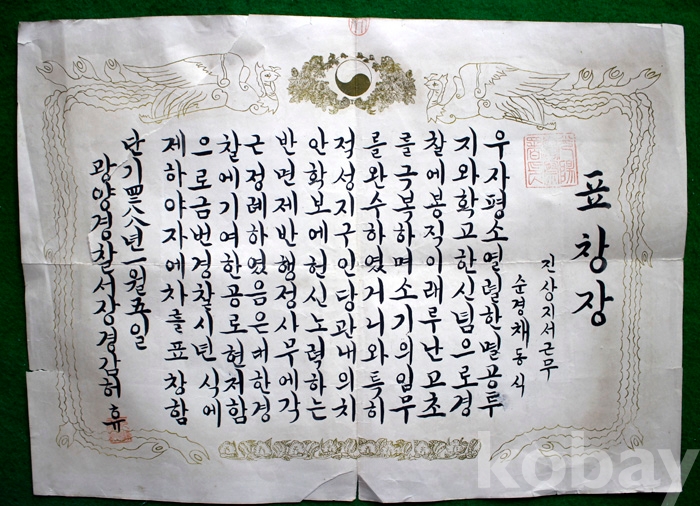 표창장
진상지서근무
순경 채동식
우자평소열렬한멸공투
지와확고한신념으로경
찰에봉직이래루난고초
를극복하며소기의임무
를완수하였거니와특히
적성지구인당관내의치
안확보에헌신노력하는
반면제반행정사무에각
근정례하였음은대한경
찰에기여한공로현저함
으로금번경찰시년식에
제하야자에차를표창함
단기四二八八년一월五일
광양경찰서장경감허휴
kobay